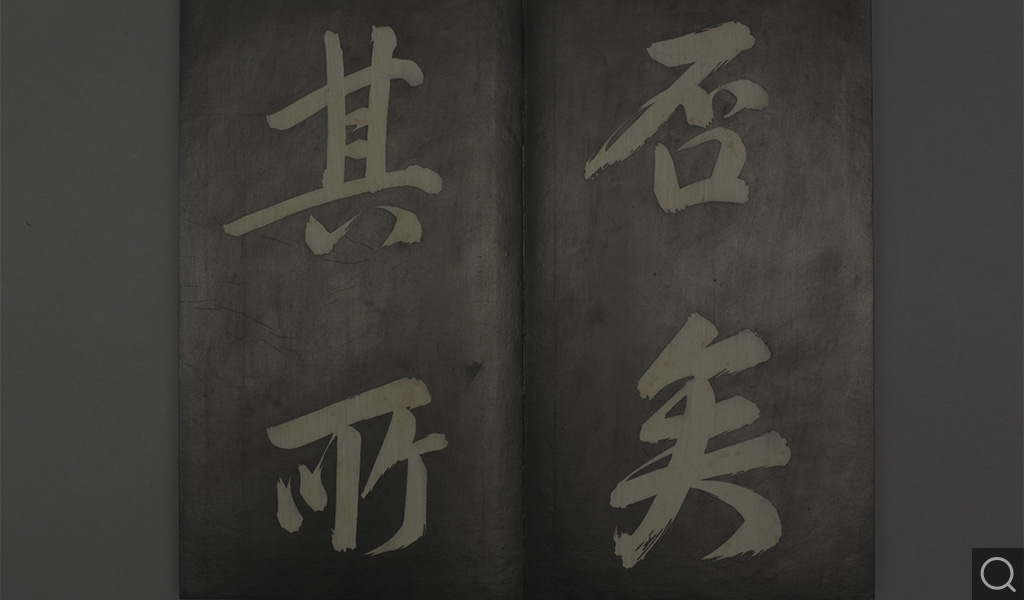 否矣
其所